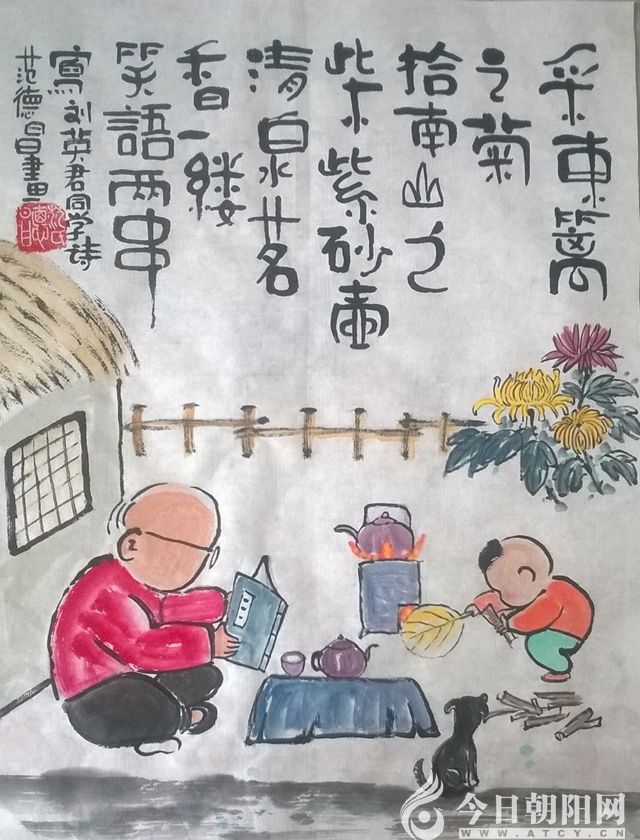 采東篱
之菊
拾南山之
柴紫砂壶
清泉茗
香一缕
笑語两串
寫刘英君同学诗
范德昌畫
今日朝阳网
WWW.ATCY.CN